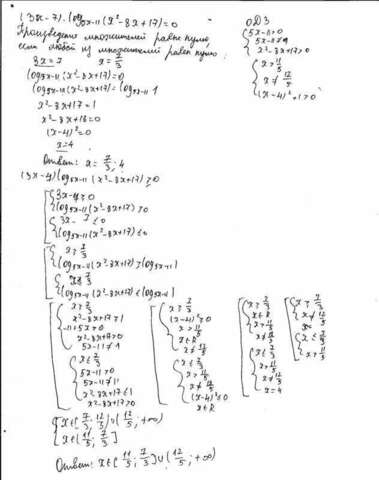 (3x-7)·log₅ₓ₋₁₁(x²-8x+17)=0
ОДЗ
Произведение множителей равно нулю,
если любой из множителей равен нулю.
{5x-11>0
5x-11≠1
x²-8x+17>0
3x=7 x=7/3
{x>11/5
x≠12/5
(x-4)²+1>0
log₅ₓ₋₁₁(x²-8x+17)=0
log₅ₓ₋₁₁(x²-8x+17)=log₅ₓ₋₁₁1
x²-8x+17=1
x²-8x+16=0
(x-4)²=0
x=4
Ответ: x=7/3; 4
(3x-7)log₅ₓ₋₁₁(x²-8x+17)≥0
[{3x-7≥0
log₅ₓ₋₁₁(x²-8x+17)≥0
{3x-7≤0
log₅ₓ₋₁₁(x²-8x+17)≤0
[{x≥7/3
log₅ₓ₋₁₁(x²-8x+17)≥log₅ₓ₋₁₁1
{x≤7/3
log₅ₓ₋₁₁(x²-8x+17)≤log₅ₓ₋₁₁1
[{x≥7/3
x²-8x+17≥1
-11+5x>0
x²-8x+17>0
5x-11≠1
{x≤7/3
5x-11>0
5x-11≠1
x²-8x+17≤1
x²-8x+17>0
[{x≥7/3
(x-4)²≥0
x>11/5
x∈R
x≠12/5
{x≤7/3
x>11/5
x≠12/5
(x-4)²≤0
x∈R
[{x≥7/3
x∈R
x>11/5
x≠12/5
{x≤7/3
x>11/5
x≠12/5
x=4
[{x≥7/3
x≠12/5
{x≤7/3
x>11/5
[x∈[7/3; 12/5)∪(12/5; +∞)
x∈(11/5; 7/3]
Ответ: x∈[11/5; 7/3]∪(12/5; +∞)